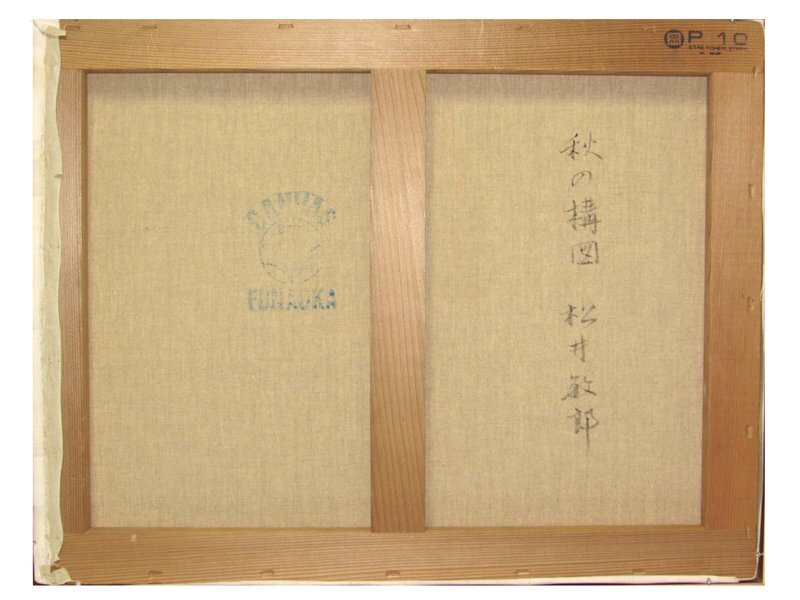 P 10
STRETCHER STRIPS
CANVAS
FUNAOKA
秋の構図 松井敏郎